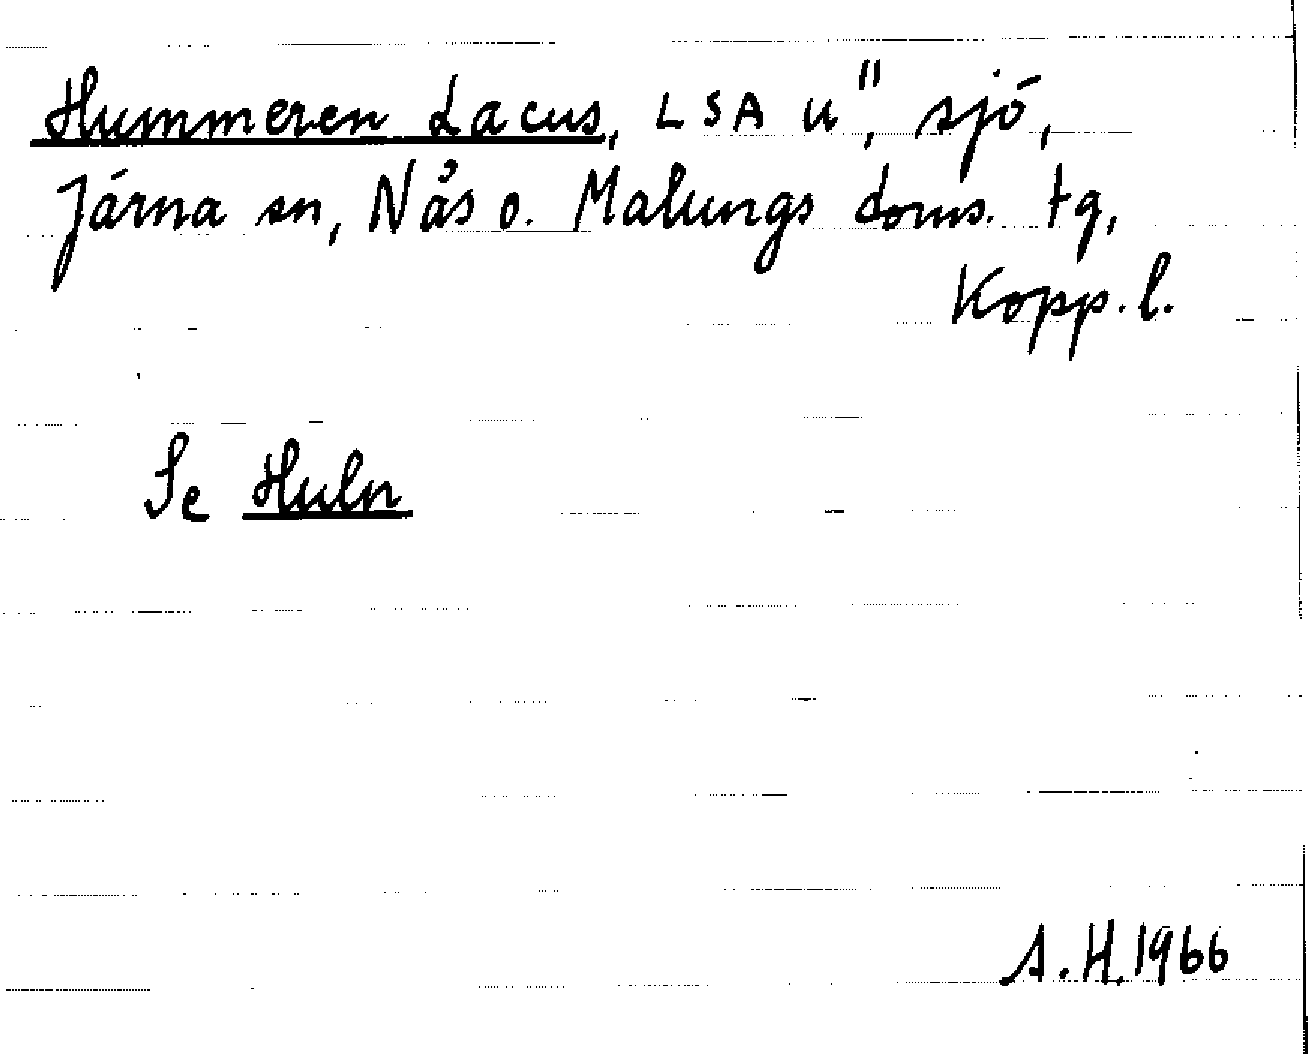 Hummeren Lacus, LSA u", sjö,
Järna sn, Nås o. Malungs doms. tg,
Kopp. l.
Se Huln
A.H. 1966